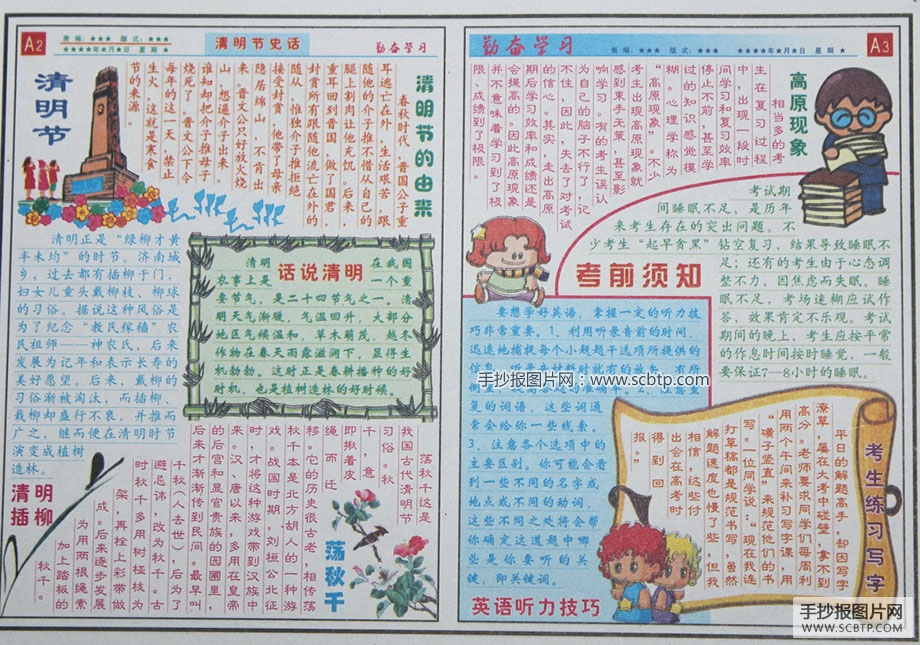 A2
责编：★★★ 版式：★★★
★★★★年★月★日 星期★
清明节史话
勤奋学习
清明节
清明节的由来
春秋时代，晋国公子重
耳逃亡在外，生活艰苦，跟
随他的介子推不惜从自己的
腿上割肉让他充饥。后来，
重耳回到晋国，做了国君，
封赏所有跟随他流亡在外的
随从，惟独介子推拒绝
接受封赏，他带了母亲
隐居绵山，不肯出
来。晋文公只好放火烧
山，想逼介子出来。
谁知却把介子推母子
烧死了。晋文公下令
每年的这一天，禁止
生火，这就是寒食
节的来源。
清明正是“绿柳才黄
半未均”的时节。济南城
乡，过去都有插柳于门，
妇女儿童头戴柳枝、柳球
的习俗。据说这种风俗是
为了纪念“教民稼穑”农
民祖师——神农氏，后来
发展为记年和表示长寿的
美好愿望。后来，戴柳的
习俗渐被淘汰，而插柳、
栽柳却盛行不衰，并推而
广之，继而便在清明时节
演变成植树
造林。
清明
插柳
话说清明
清明在我国
农事上是一个重
要节气，是二十四节气之一，清
明天气渐暖，气温回升，大部分
地区气候温和，草木萌茂，越冬
作物在春天雨露滋润下，显得生
机勃勃，这时正是春耕播种的好
时机，也是植树造林的好时候。
荡秋千
荡秋千这是
我国古代清明节
习俗。秋
千，意
即揪着皮
绳而迁
移。它的历史很古老，相传荡
秋千本是北方胡人的一种游
戏。战国时期，刘桓公北征
时，才将这种游戏带到汉族中
来。汉、唐以来，多用在皇帝
的后宫和显官贵族的园囿里，
后来才渐渐传到民间。最早叫
千秋（人去世），后为了
避忌讳，改为秋千。古
时秋千多用树桠枝为
架，再栓上彩带做
成。后来逐步发展
为用两根绳索
加上踏板的
秋千。
勤奋学习
责编：★★★ 版式：★★★ ★★★★年★月★日 星期★
A3
高原现象
相当多的考
生在复习过程
中，出现一段时
间学习和复习效率
停止不前，甚至学
过的知识感觉模
糊。心理学称为
“高原现象”。不少
考生出现高原现象就
感到束手无策，甚至影
响学习。有的考生误认
为自己的脑子不行了，记
不住，因此，失去了对考试
的信心。其实，走出高原
期后学习效率和成绩还是
会提高的。因此高原现象
并不意味着学习到了极
限、成绩到了极限。
考前须知
考试期
间睡眠不足，是历年
来考生存在的突出问题。不
少考生“起早贪黑”钻空复习，结果导致睡眠不
足；还有的考生由于心态调
整不力，因焦虑而失眠。睡
眠不足，考场迷糊应试作
答，效果肯定不乐观。考试
期间的晚上，考生应按平常
的作息时间按时睡觉，一般
要保证7—8小时的睡眠。
要想学好英语，掌握一定的听力技
巧非常重要。1、利用听录音前的时间，
迅速地捕捉每个小题题干选项所提供的
信息，听录音材料时就有的放矢，有所
复的词语，这些词通
常会给你一些线索。
3、注意各个选项中的
主要区别。你可能会看
到一些不同的名字或
地点或不同的动词，
这些不同之处将会帮
你确定这道题中哪
些是你要听的关
键，即关键词。
英语听力技巧
考生练习写字
平日的解题高手，却因写字
潦草，屡在大考中碰壁，拿不到
高分。老师要求同学们每周利
用两个午间来补习写字课，用
“横平竖直”来规范他们的书
写。一位同学说：“现在我连
打草稿都是规范书写，虽然
解题速度也慢了些，但我
相信，这些付
出会在高考时
得到回
报。”
手抄报图片网：www.scbtp.com
手抄报图片网
WWW.SCBTP.COM